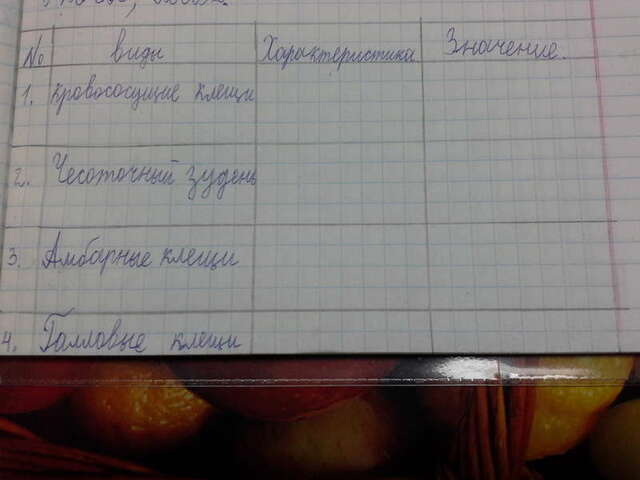 № виды Характеристика Значение.
1. кровососущие клещи
2. Чесоточный зудень
3. Амбарные клещи
4. Галловые клещи